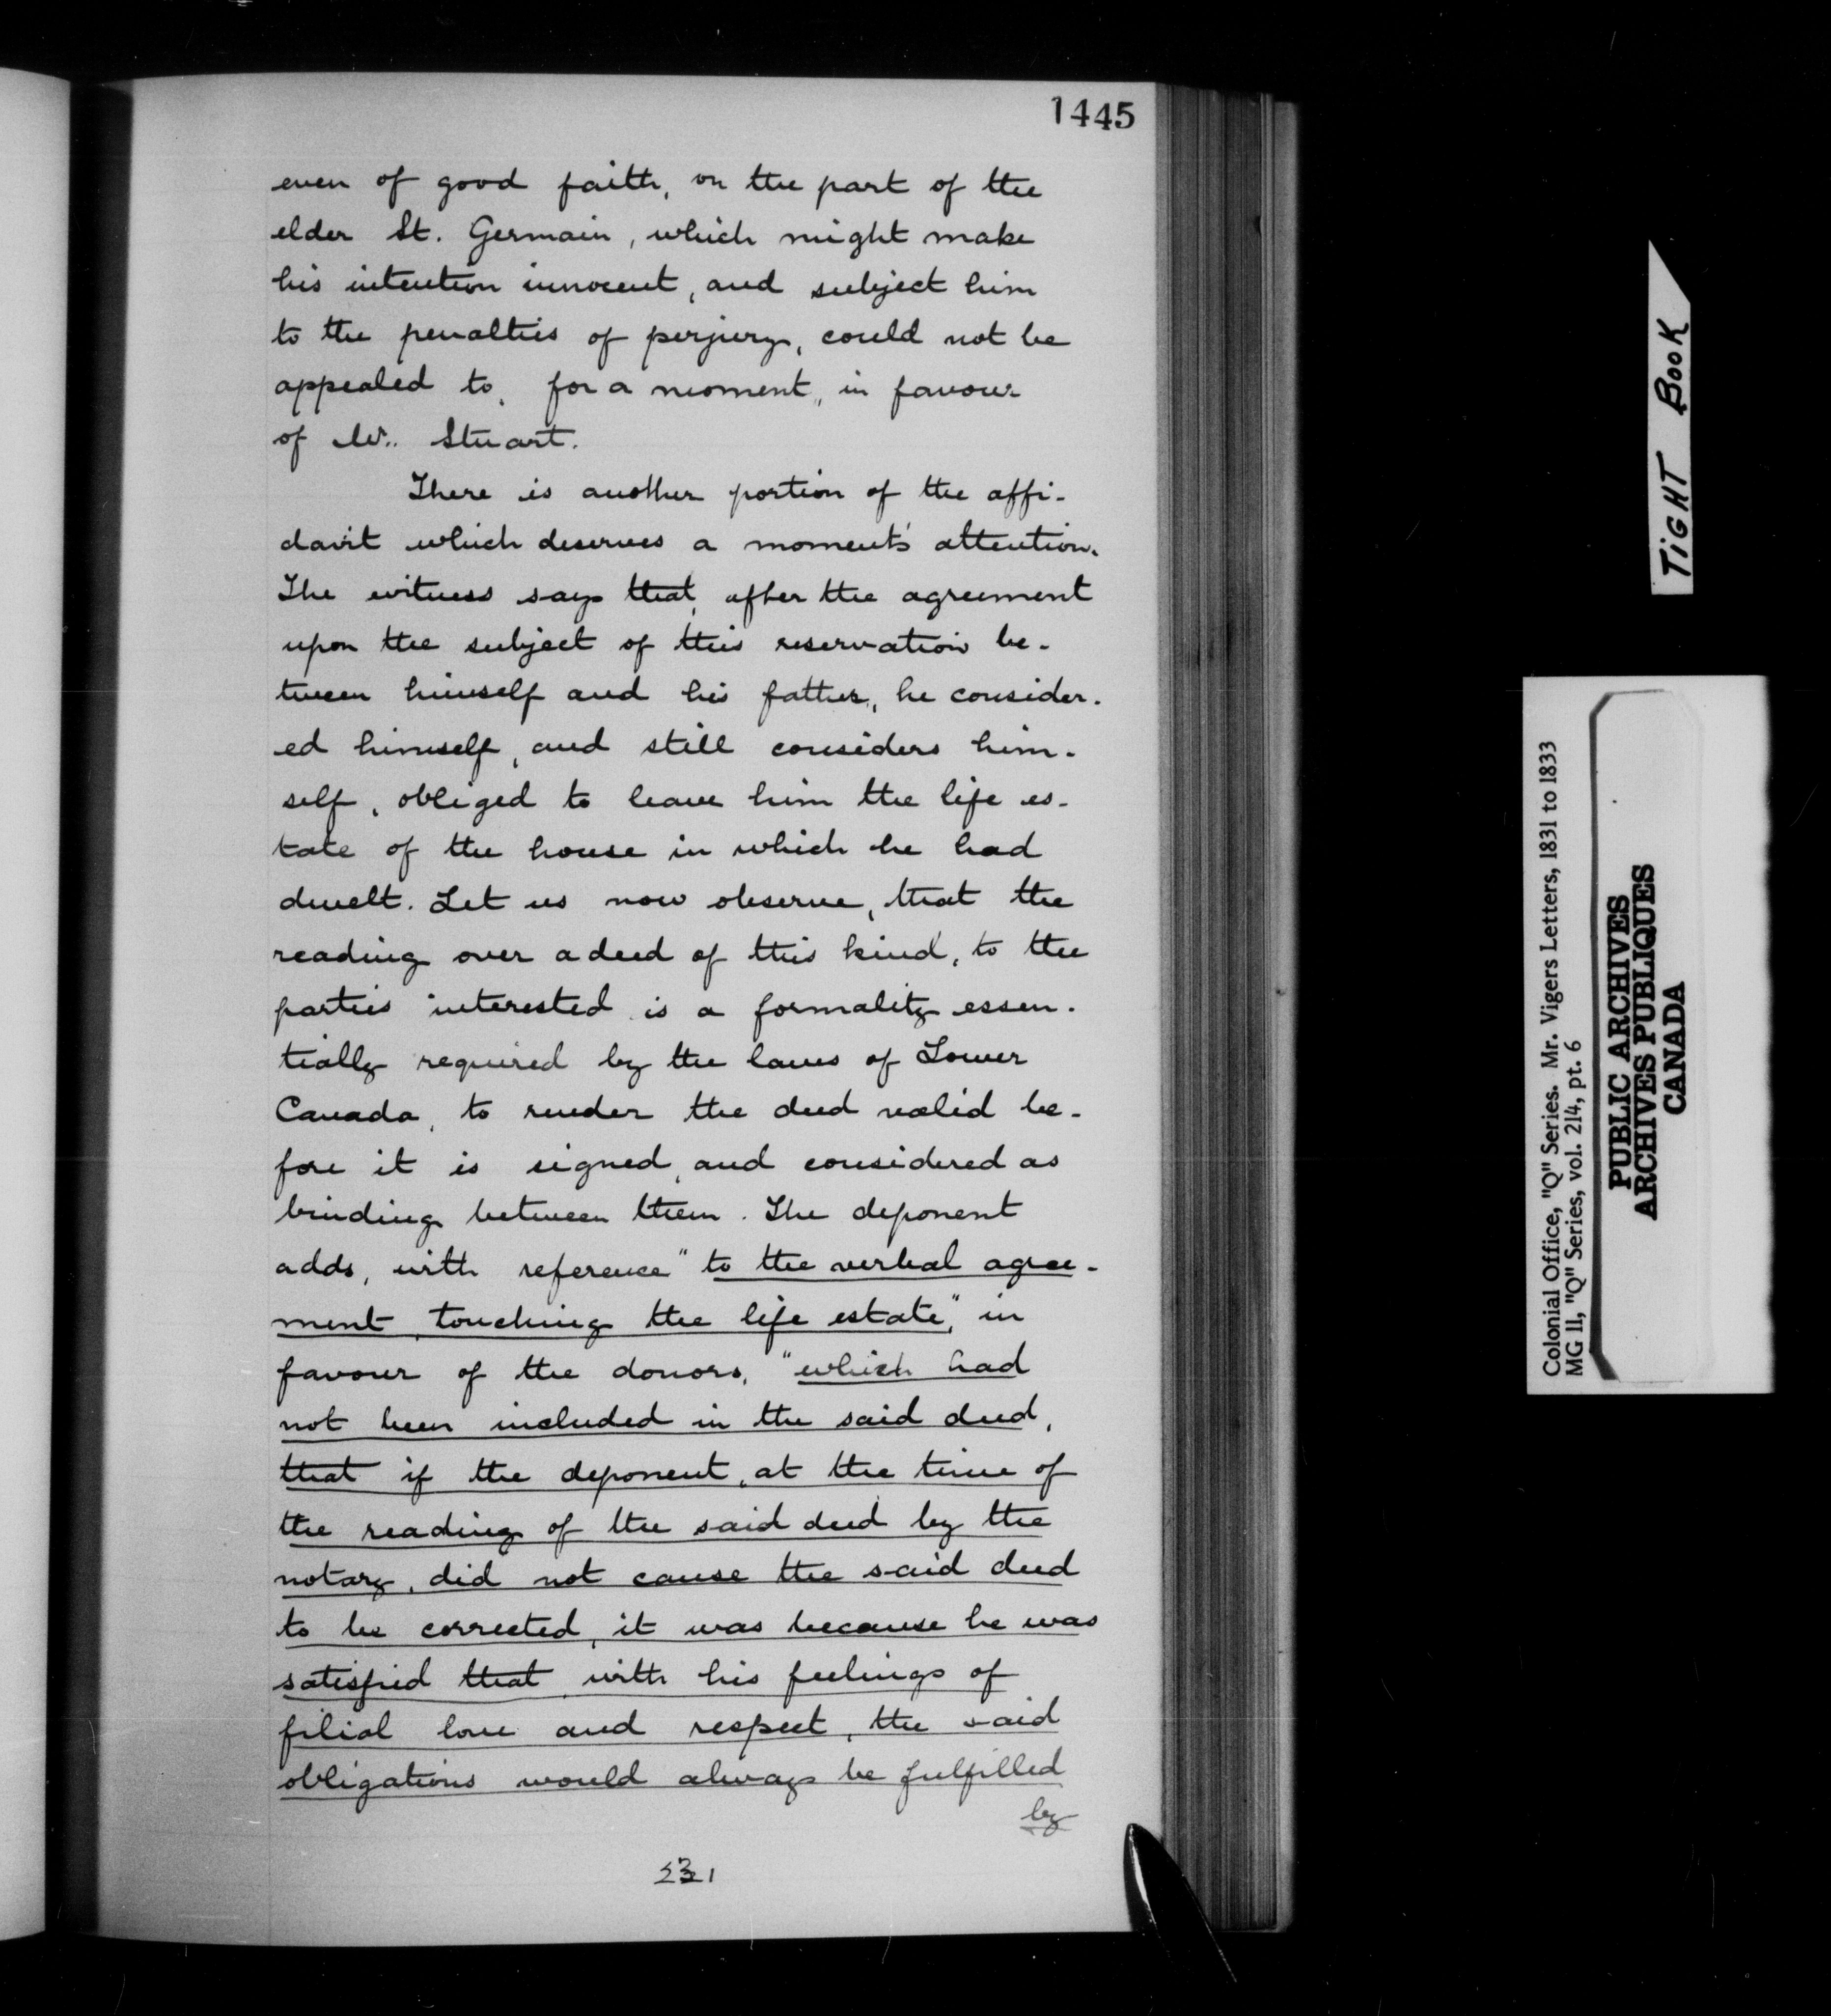 1445
even of good faith, on the part of the
elder St. Germain, which might make
his intention innocent, and subject him
to the penalties of perjury, could not be
appealed to, for a moment, in favour
of Mr. Stuart.
There is another portion of the affi-
davit which deserves a moment's attention.
The witness says that, after the agreement
upon the subject of this reservation be-
tween himself and his father, he consider-
ed himself, and still considers him-
self, obliged to leave him the life es-
tate of the house in which he had
dwelt. Let us now observe, that the
reading over a deed of this kind, to the
parties interested is a formality essen-
tially required by the laws of Lower
Canada, to render the deed valid be-
fore it is signed, and considered as
binding between them. The deponent
adds, with reference "to the verbal agree-
ment, touching the life estate," in
favour of the donors, "which had
not been included in the said deed,
that if the deponent, at the time of
the reading of the said deed by the
notary, did not cause the said deed
to be corrected, it was because he was
satisfied that, with his feelings of
filial love and respect, the said
obligations would always be fulfilled
by
TIGHT BOOK
Colonial Office, "Q" Series. Mr. Vigers Letters, 1831 to 1833
MG 11, "Q" Series, vol. 214, pt. 6
PUBLIC ARCHIVES
ARCHIVES PUBLIQUES
CANADA